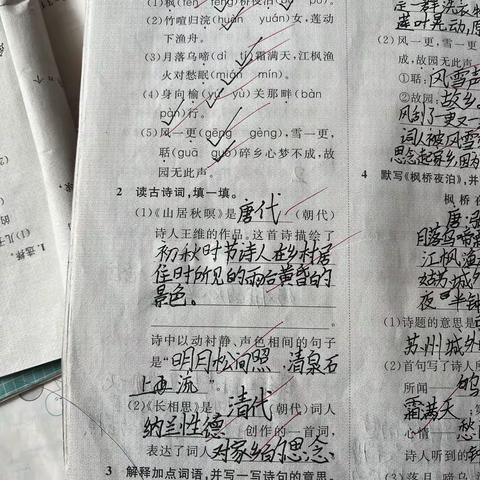 (2)竹喧归浣(huàn yuán)女,莲动
下渔舟。
(3)月落乌啼(dì tí)霜满天,江枫渔
火对愁眠(mián mín)。
(4)身向榆(yú yù)关那畔(bàn
pàn)行。
(5)风一更(gēng gèng),雪一更,
聒(guā guō)碎乡心梦不成,故
园无此声。
2 读古诗词,填一填。
(1)《山居秋暝》是唐代(朝代)
诗人王维的作品。这首诗描绘了
初秋时节诗人在乡村居
住时所见的雨后黄昏的
景色。
诗中以动衬静、声色相间的句子
是“明月松间照,清泉石
上流”
(2)《长相思》是清代(朝代)词人
纳兰性德创作的一首词,
表达了词人对家乡的思念
3 解释加点词语,并写一写诗句的意思。
(2)风一更,雪一更
成,故园无此声。
①聒:风雪声
②故园:故乡。
词人被风雪
4 默写《枫桥夜泊》,并
枫桥夜
月落乌啼
江枫渔
姑苏城外
夜半钟
(1)诗题的意思是
苏州城外
(2)首句写了诗人所
所闻
霜满天
心情 愁
诗人听到的钟
1. 选择。